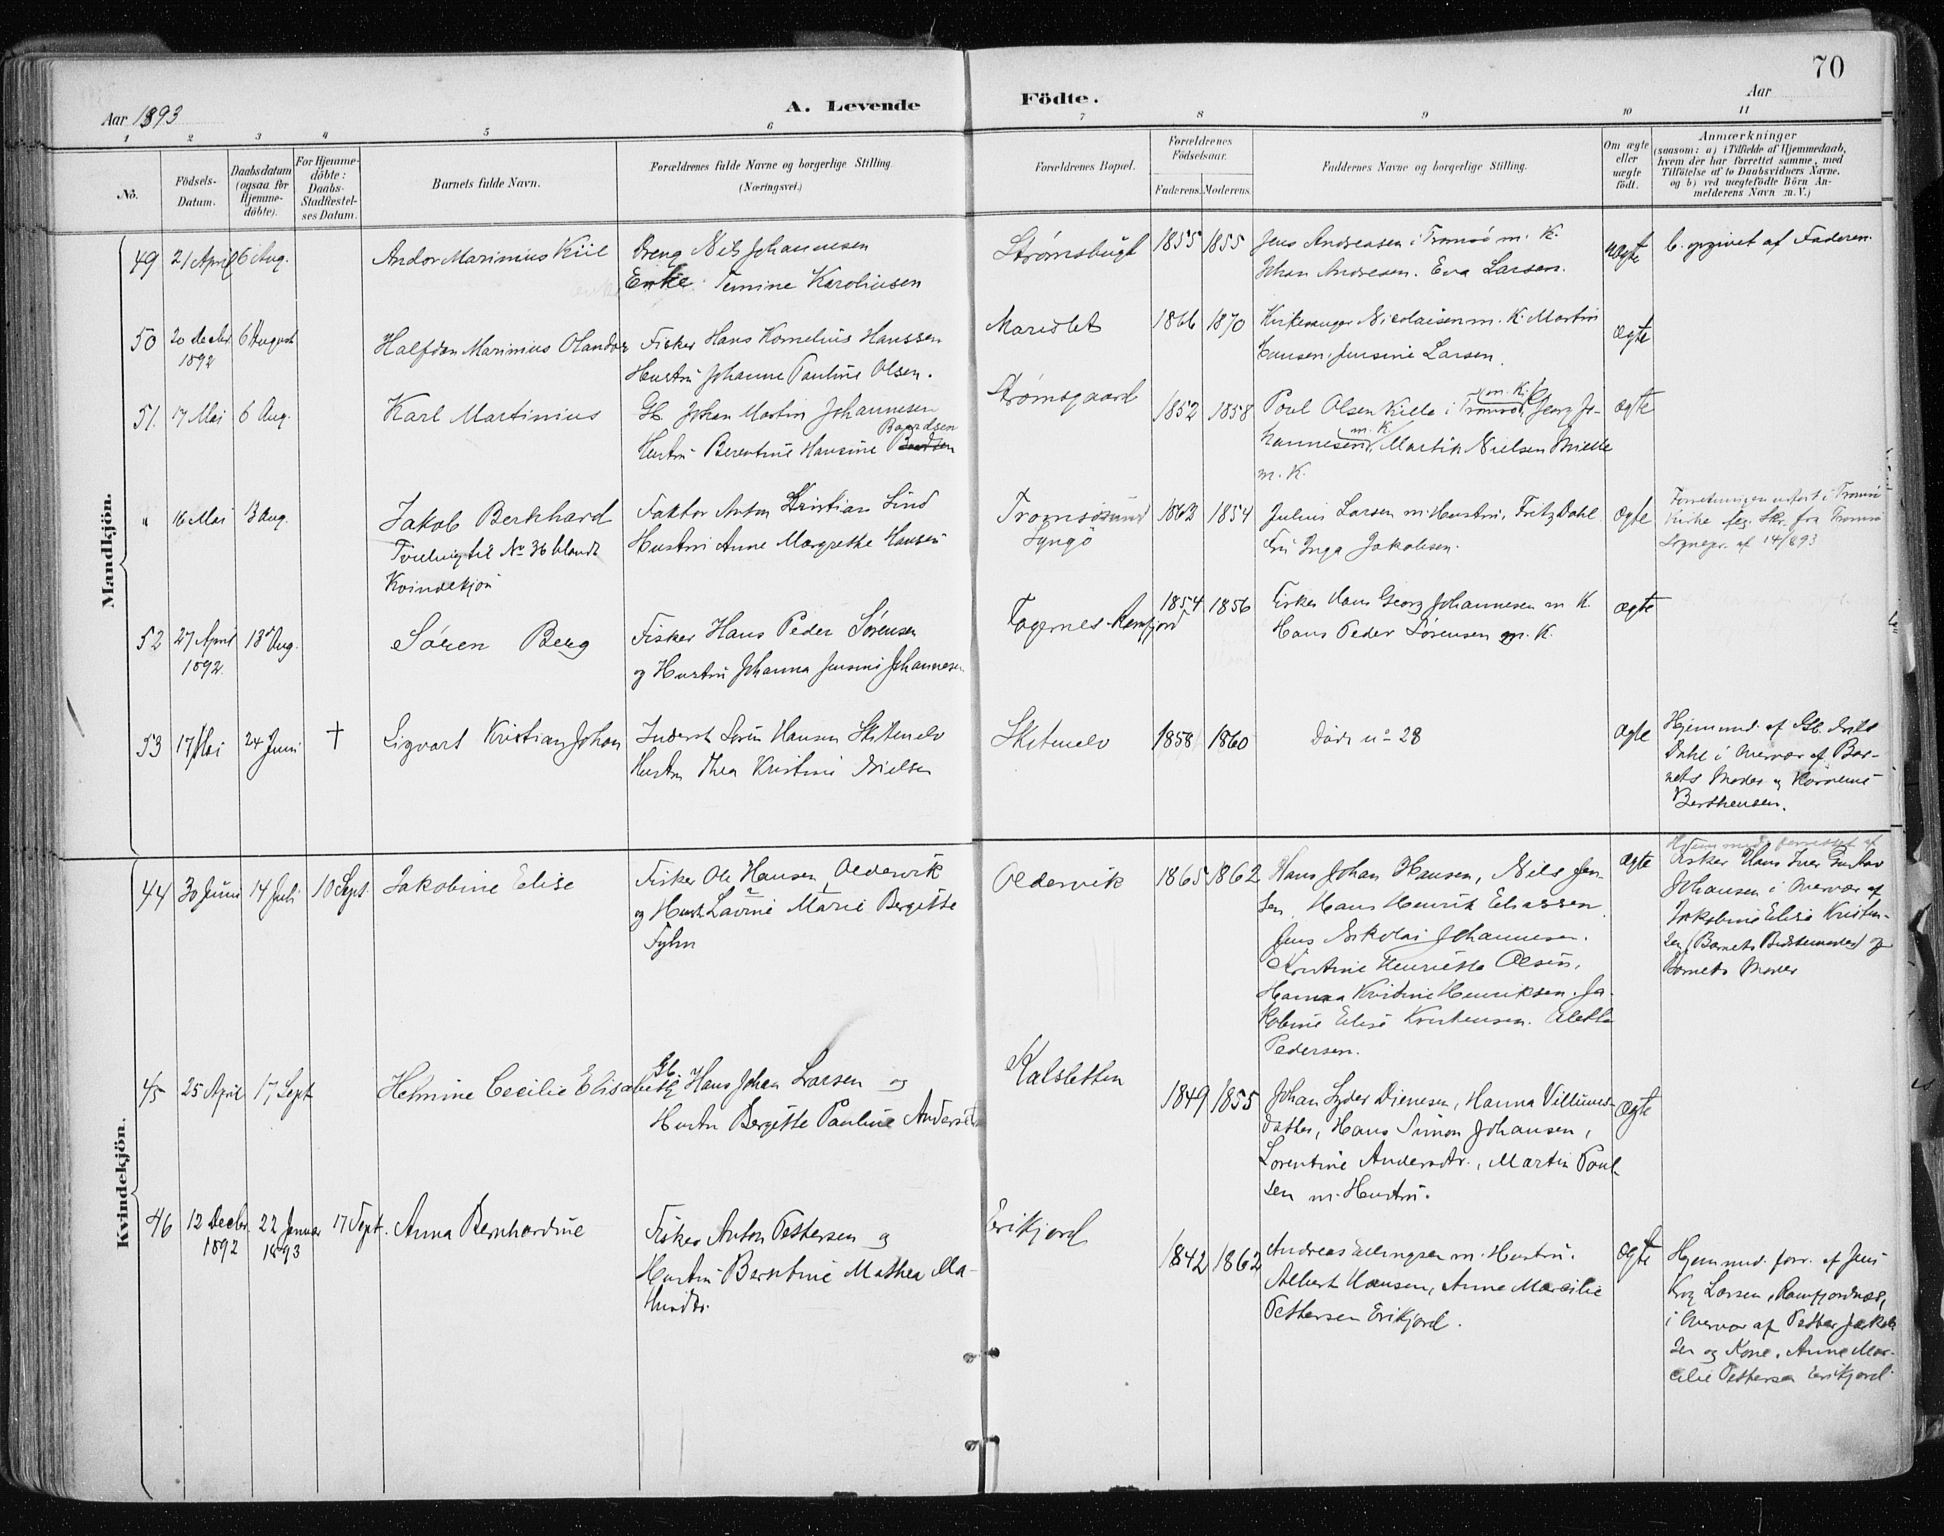 70
Aar 1893
A. Levende
Födte.
Aar
1 2 3 4 5 6 7 8 9 10 11
No.
Födsels-
Datum.
Daabsdatum
(ogsaa for
Hjemme-
döbte).
For Hjemme-
döbte:
Daabs-
Stadfæstel-
ses Datum.
Barnets fulde Navn.
Forældrenes fulde Navne og borgerlige Stilling.
(Næringsvei.)
Forældrenes Bopæl.
Forældrenes
Födselsaar.
Faderens. Moderens.
Faddernes Navne og borgerlige Stilling.
Om ægte
eller
uægte
födt.
Anmærkninger
(saasom: a) i Tilfælde af Hjemmedaab,
hvem der har forrettet samme, med
Tilföielse af to Daabsvidners Navne,
og b) ved uægtefödte Börn An-
melderens Navn m. V.)
Mandkjön.
49 21 April 6 Aug.
Andor Marinius Kiil
Dreng Nils Johannesen
Enke Karolinsen
Strømsbugt
1855 1855
Jens Andreasen i Tromsö m. K.
Johan Andresen. Eva Larsen.
uægte
b. opgivet af Faderen.
50 20 Decbr 6 August
1892
Halfdan Marinius Olandor
Fisker Hans Kornelius Hanssen
Hustru Johanne Pauline Olsen.
1866 1870
Kirkesanger Nicolaisen m. K. Martin
Hansen, Jensine Larsen.
ægte
51. 17 Mai 6 Aug.
Karl Martinius
Gb. Johan Martin Johannesen
Baardsen
Hustru Berentine Hansine
Strømsgaard
1852 1858
m. K.
Poul Olsen i Tromsö, Georg Jo-
m. K.
hannesen, Martin Nielsen
m. K.
ægte
" 16 Mai 13 Aug.
Jakob Berkhard
Tvilling til No 36 blandt
Kvindekjön
Faktor Anton Kristian Lind
Hustru Anne Margrethe Hansen
Tromsösund
Lyngö
1863 1854
Julius Larsen m. Hustru, Fritz Dahl
Fru Inga Jakobsen.
ægte
Forretningen udført i Tromsö
Kirke flg. Skr. fra Tromsö
Sognepr. af 14/893
52 27 April 13 Aug.
1892
Sören Berg
Fisker Hans Peder Sörensen
og Hustru Johanna Jensine Johannesen
Fagernes-Ramfjord
1854 1856
Fisker Hans Georg Johannesen m. K.
Hans Peder Sörensen m. K.
ægte
53 17 Mai 24 Juni †
Sigvart Kristian Johan
Inderst Sören Hansen Skitnelv
Hustru Thea Kristine Nielsen
Skitnelv
1858 1860
Döde no 28
ægte
Hjemmed. af Gb. Nils
Dahl i Overvær af Bar-
nets Moder og
Berthensen.
Kvindekjön.
44 30 Juni 14 Juli 10 Sept.
Jakobine Elise
Fisker Ole Hansen Oldervik
2 1
og Hustr. Lavine Marie Bergitte
Fyhn
Oldervik
1865 1862
Hans Johan Hansen, Nils Jen-
sen, Hans Henrik Eliassen
Jens Nikolai Johannesen.
Kristine Henriette Olsen,
Hanna Kristine Henriksen. Ja-
kobine Elise Kristensen. Aletta
Pedersen.
ægte
Hjemmed. forrettet af
Fisker Hans Iver Gustav
Johansen i Overvær af
Jakobine Elise Kristen-
sen (Barnets Bedstemoder) og
Barnets Moder
45 25 April 17 Sept
Helmine Cecilie Elisabeth
Gb. Hans Johan Larsen og
Hustru Bergitte Pauline Andersdtr
Kalsletten
1849 1855
Johan Lyder Dienesen, Hanna Villums-
datter, Hans Simon Johansen,
Lorentine Andersdtr., Martin Poul-
sen m. Hustru.
ægte
46 12 Decbr. 22 Januar 17 Sept.
1892 1893
Anna Bernhardine
Fisker Anton Pettersen og
Hustru Berntine Mathea Ma-
Erikjord
1842 1862
Andreas Ellingsen m. Hustru.
Albert Hansen, Anne Marcilie
Pettersen Erikjord.
ægte
Hjemmed. forr. af Jens
Krog Larsen, Ramfjordnes,
i Overvær af Petter Jakob-
sen og Kone, Anne Mar-
cilie Pettersen Erikjord.